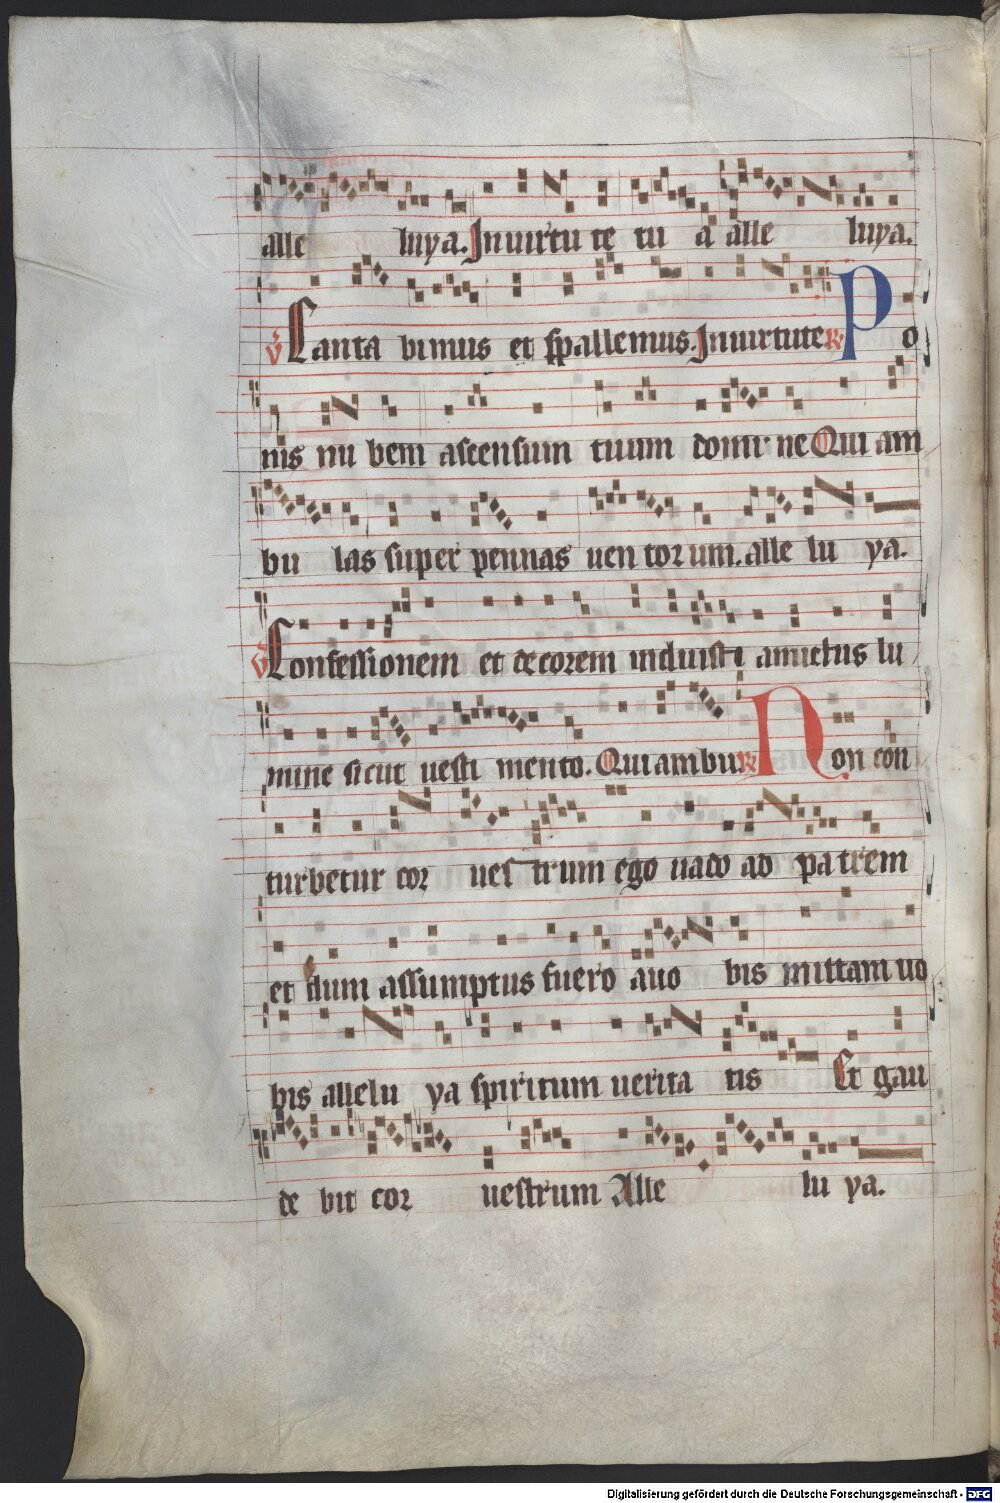 alle luya. In uirtu te tu a alle luya.
V Canta bimus et spallemus. In uirtute R Po
nis nu bem ascensum tuum domi ne Qui am
bu las super pennas uen torum. alle lu ya.
V Confessionem et decorem induisti amictus lu
mine sicut uesti mento. Qui ambu R Non con
turbetur cor ues trum ego uado ad pa trem
et dum assumptus fuero a uo bis mittam uo
bis allelu ya spiritum uerita tis Et gau
de bit cor uestrum Alle lu ya.
Digitalisierung gefördert durch die Deutsche Forschungsgemeinschaft - DFG